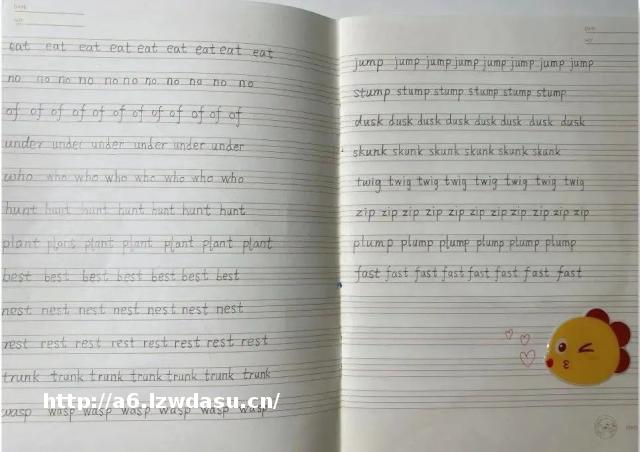 eat eat eat eat eat eat eat eat eat
no no no no no no no no no no no
of of of of of of of of of of of of
under under under under under under
who who who who who who who who
hunt hunt hunt hunt hunt hunt hunt
plant plant plant plant plant plant plant
best best best best best best best
nest nest nest nest nest nest nest
rest rest rest rest rest rest rest rest
trunk trunk trunk trunk trunk trunk trunk
wasp wasp wasp wasp wasp wasp wasp
http://a6.lzwdasu.cn/
jump jump jump jump jump jump jump jump
stump stump stump stump stump stump
dusk dusk dusk dusk dusk dusk dusk dusk
skunk skunk skunk skunk skunk skunk
twig twig twig twig twig twig twig twig
zip zip zip zip zip zip zip zip zip zip
plump plump plump plump plump plump
fast fast fast fast fast fast fast fast